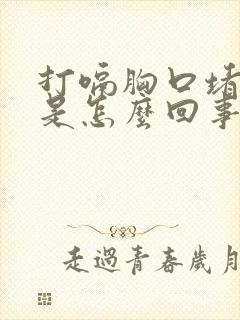 打嗝胸口堵
是怎麼回事
走過青春歲月